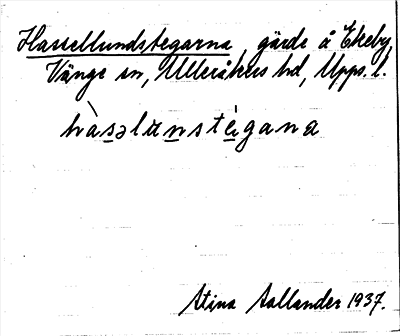 Hassellundstegarna gärde å Ekeby,
Vänge sn, Ulleråkers hd, Upps. l.
hàsəlu̲n̲sté̲gana
Stina Aallander 1937.